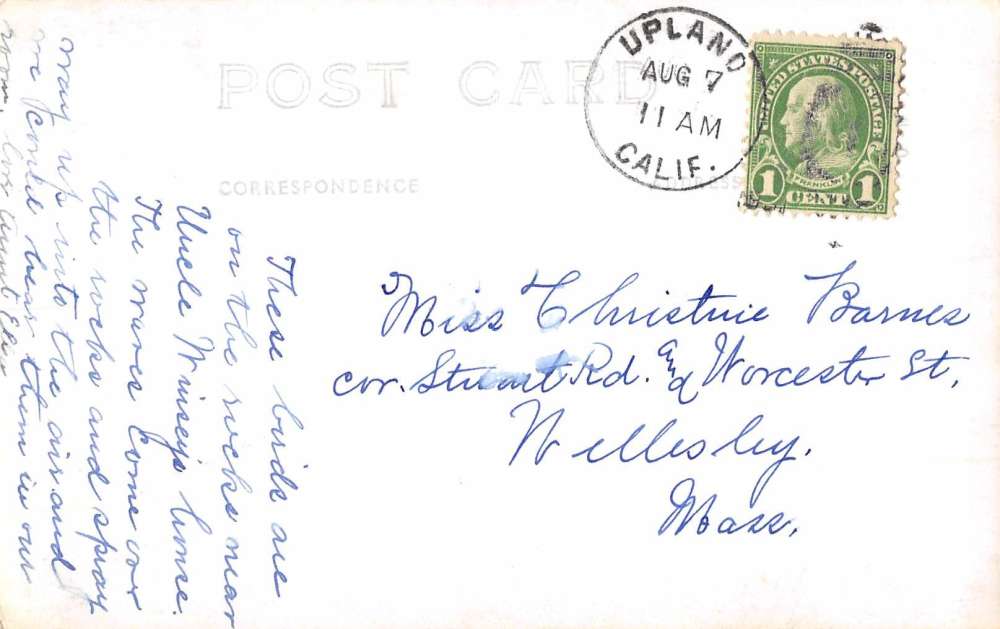 POST CARD
CORRESPONDENCE
UPLAND
AUG 7
11 AM
CALIF.
UNITED STATES POSTAGE
FRANKLIN
1 CENT 1
These birds are
on the rocks near
Uncle Winsey's home.
The waves come over
the rocks and spray
way up into the air and
we could hear them in our
room. Love Aunt Elsie
Miss Christine Barnes
cor. Stuart Rd. and Worcester St.
Wellesley.
Mass.